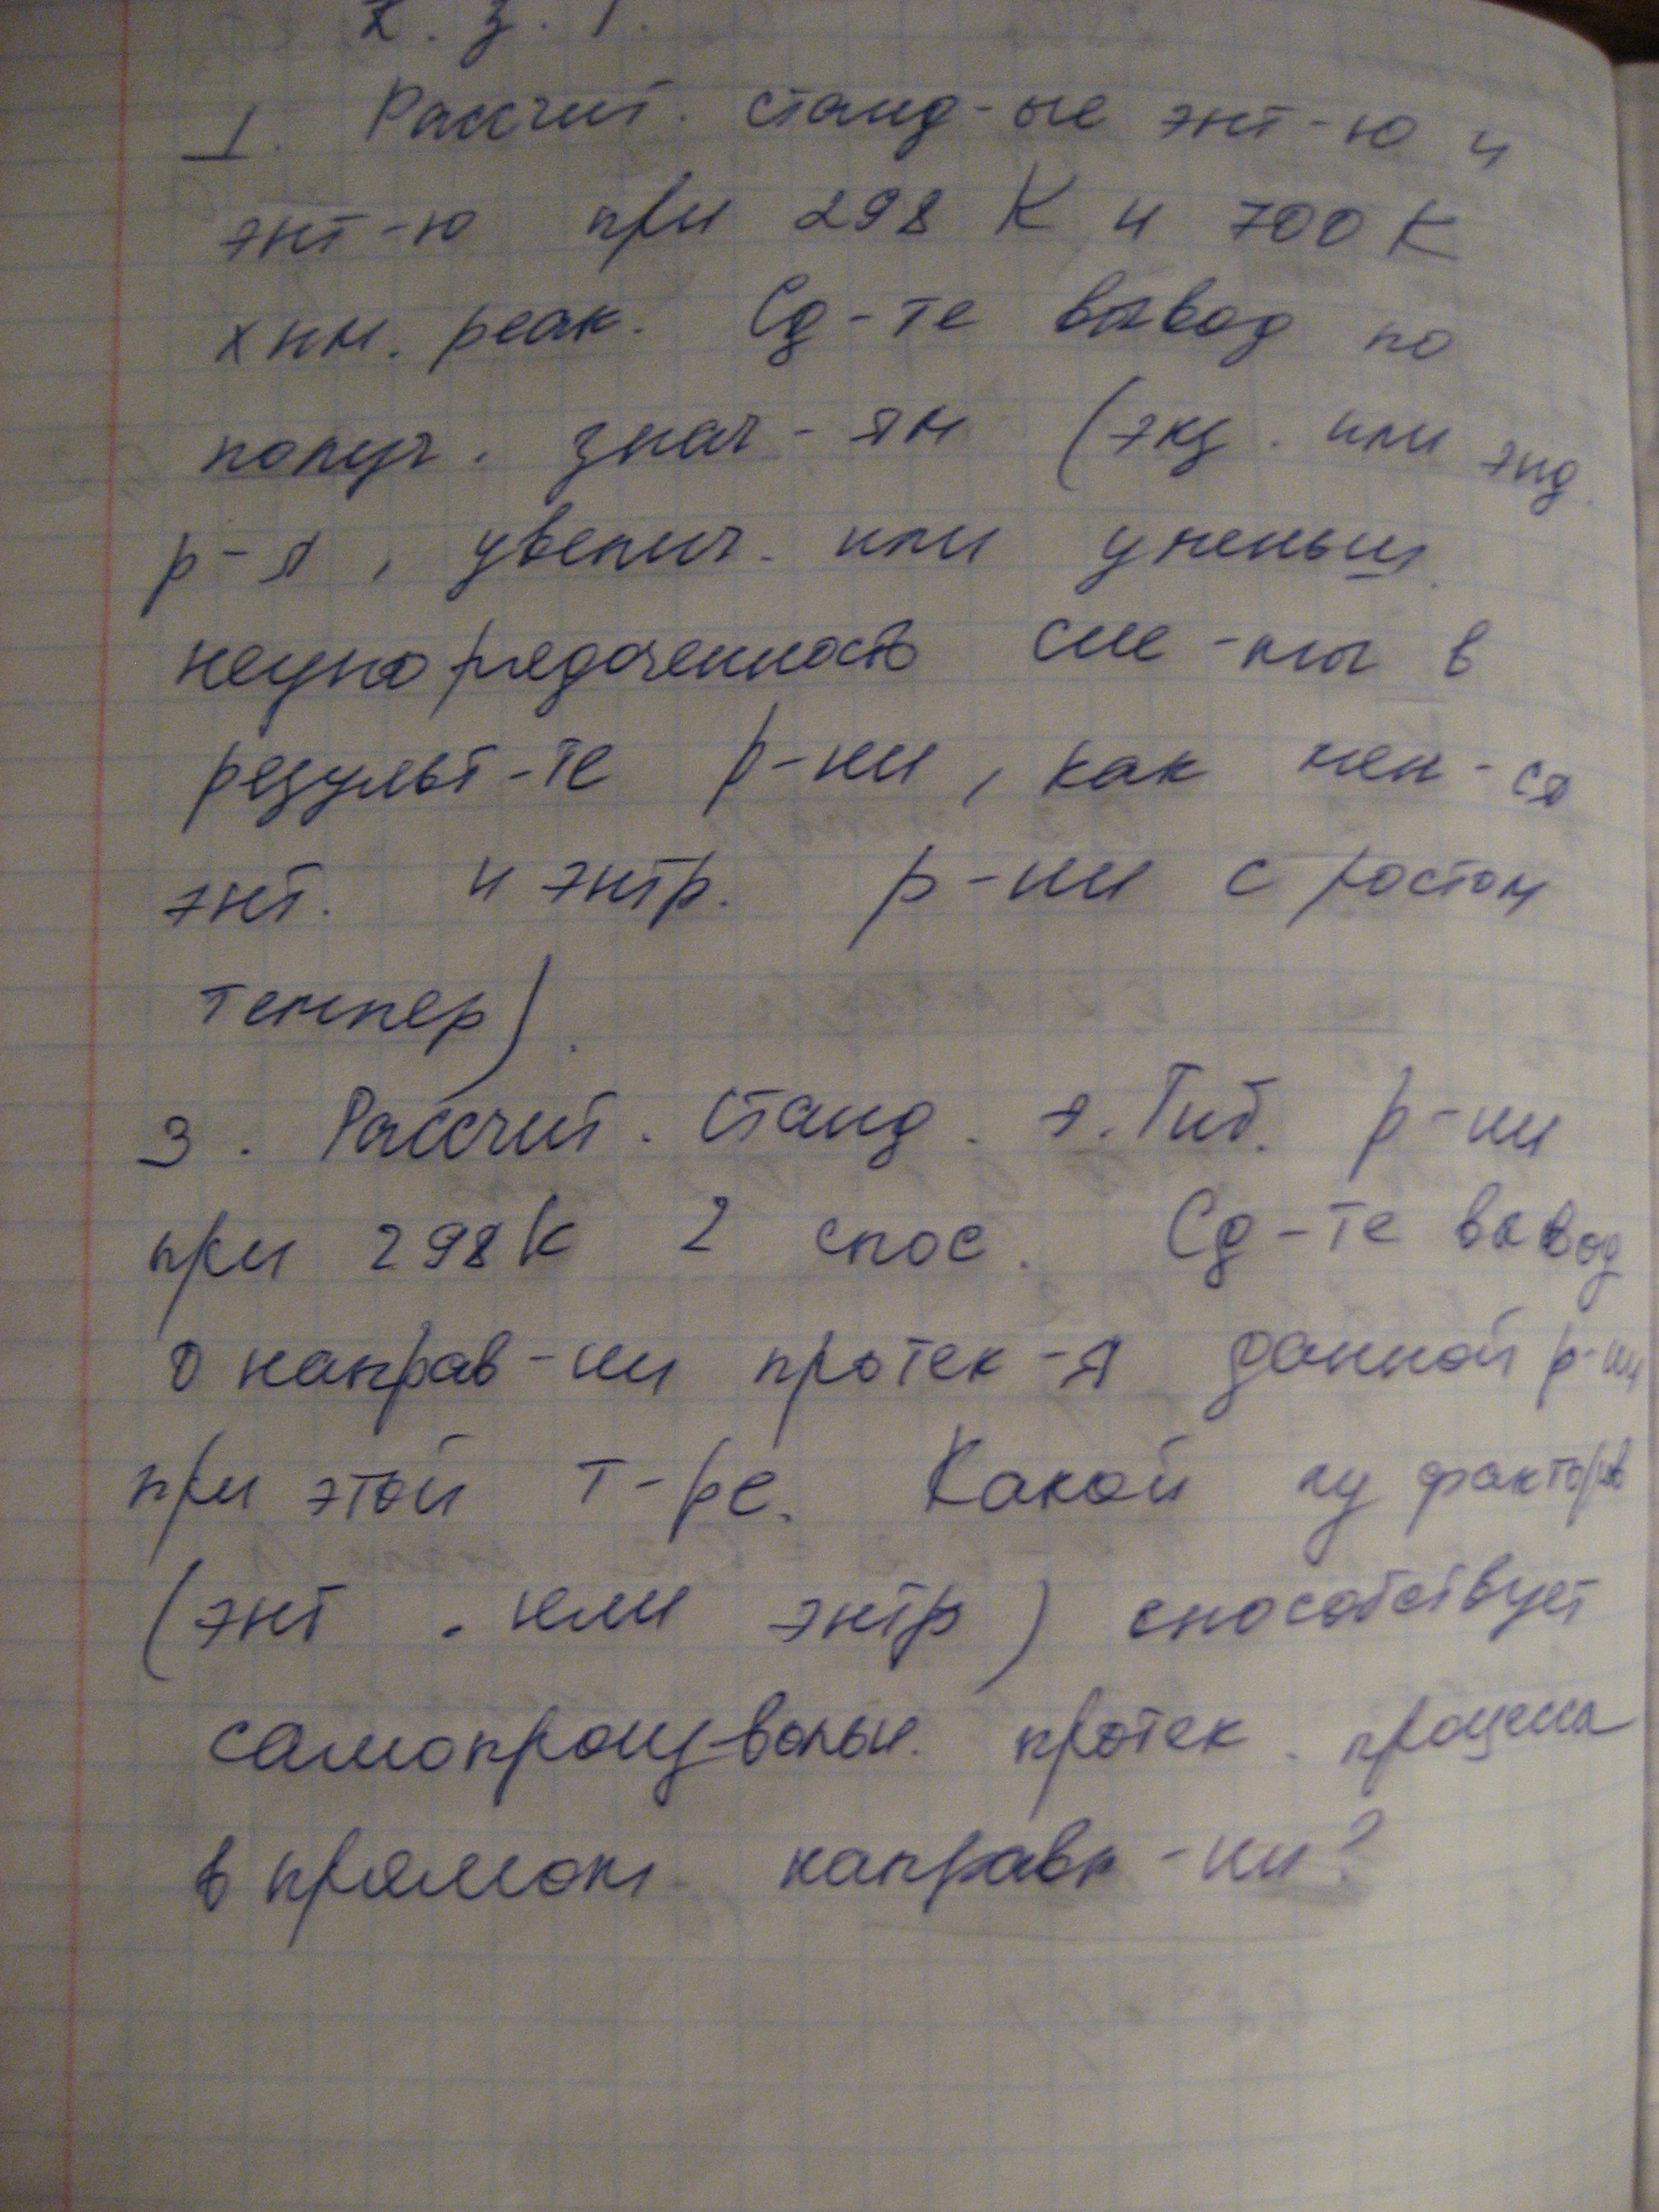 К. З. 1.
1. Рассчит. станд-ые энт-ю и
энт-ю при 298 К и 700 К
хим. реак. Сд-те вывод по
получ. знач-ям (экз. или энд.
р-я, увелич. или уменьш.
неупорядоченность сис-мы в
результ-те р-ии, как мен-ся
энт. и энтр. р-ии с ростом
темпер).
3. Рассчит. станд. э. Гиб. р-ии
при 298К 2 спос. Сд-те вывод
о направ-ии протек-я данной р-ии
при этой т-ре. Какой из факторов
(энт. или энтр) способствует
самопроизвольн. протек. процесса
в прямом направл-ии?